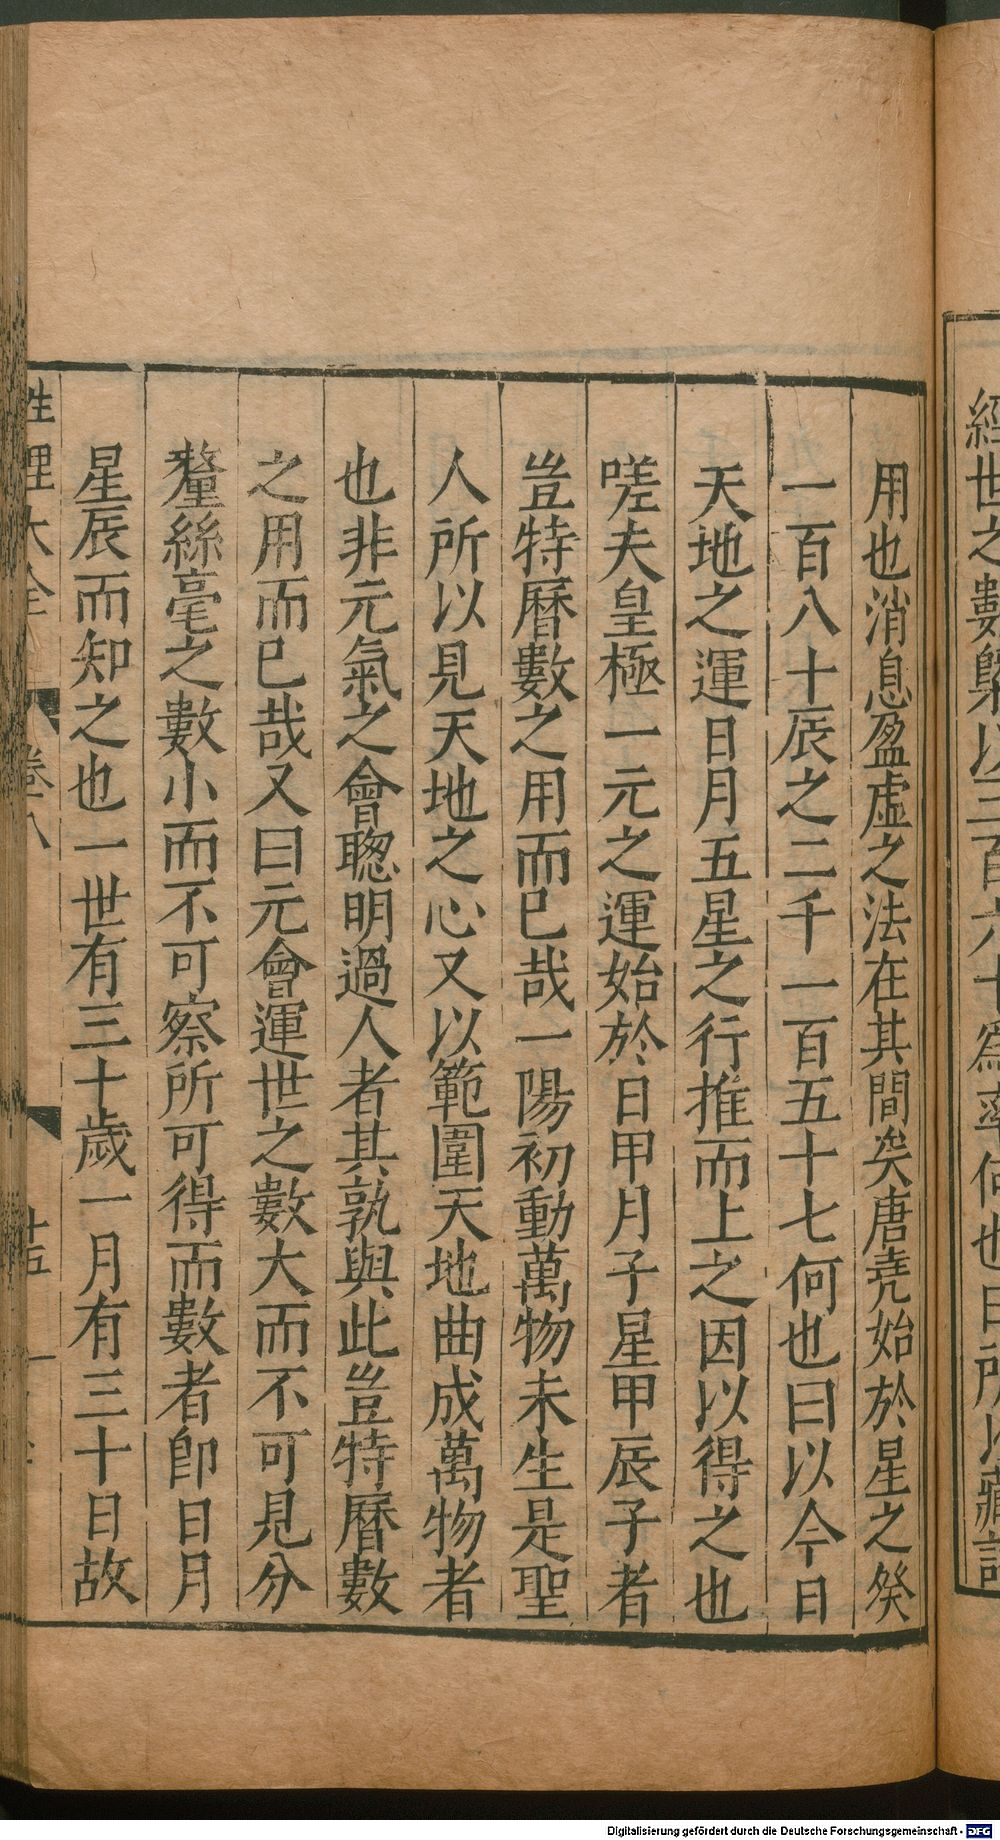 經世之數槩以三百六十爲率何也曰所以藏諸
用也消息盈虛之法在其間矣唐堯始於星之癸
一百八十辰之二千一百五十七何也曰以今日
天地之運日月五星之行推而上之因以得之也
嗟夫皇極一元之運始於日甲月子星甲辰子者
豈特曆數之用而已哉一陽初動萬物未生是聖
人所以見天地之心又以範圍天地曲成萬物者
也非元氣之會聰明過人者其孰與此豈特曆數
之用而已哉又曰元會運世之數大而不可見分
釐絲毫之數小而不可察所可得而數者卽日月
星辰而知之也一世有三十歲一月有三十日故
性理大全 卷八 十五
Digitalisierung gefördert durch die Deutsche Forschungsgemeinschaft - DFG